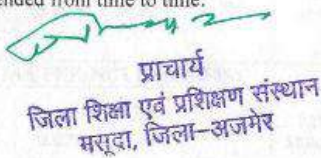 ended from time to time.
प्राचार्य
जिला शिक्षा एवं प्रशिक्षण संस्थान
मसूदा, जिला–अजमेर